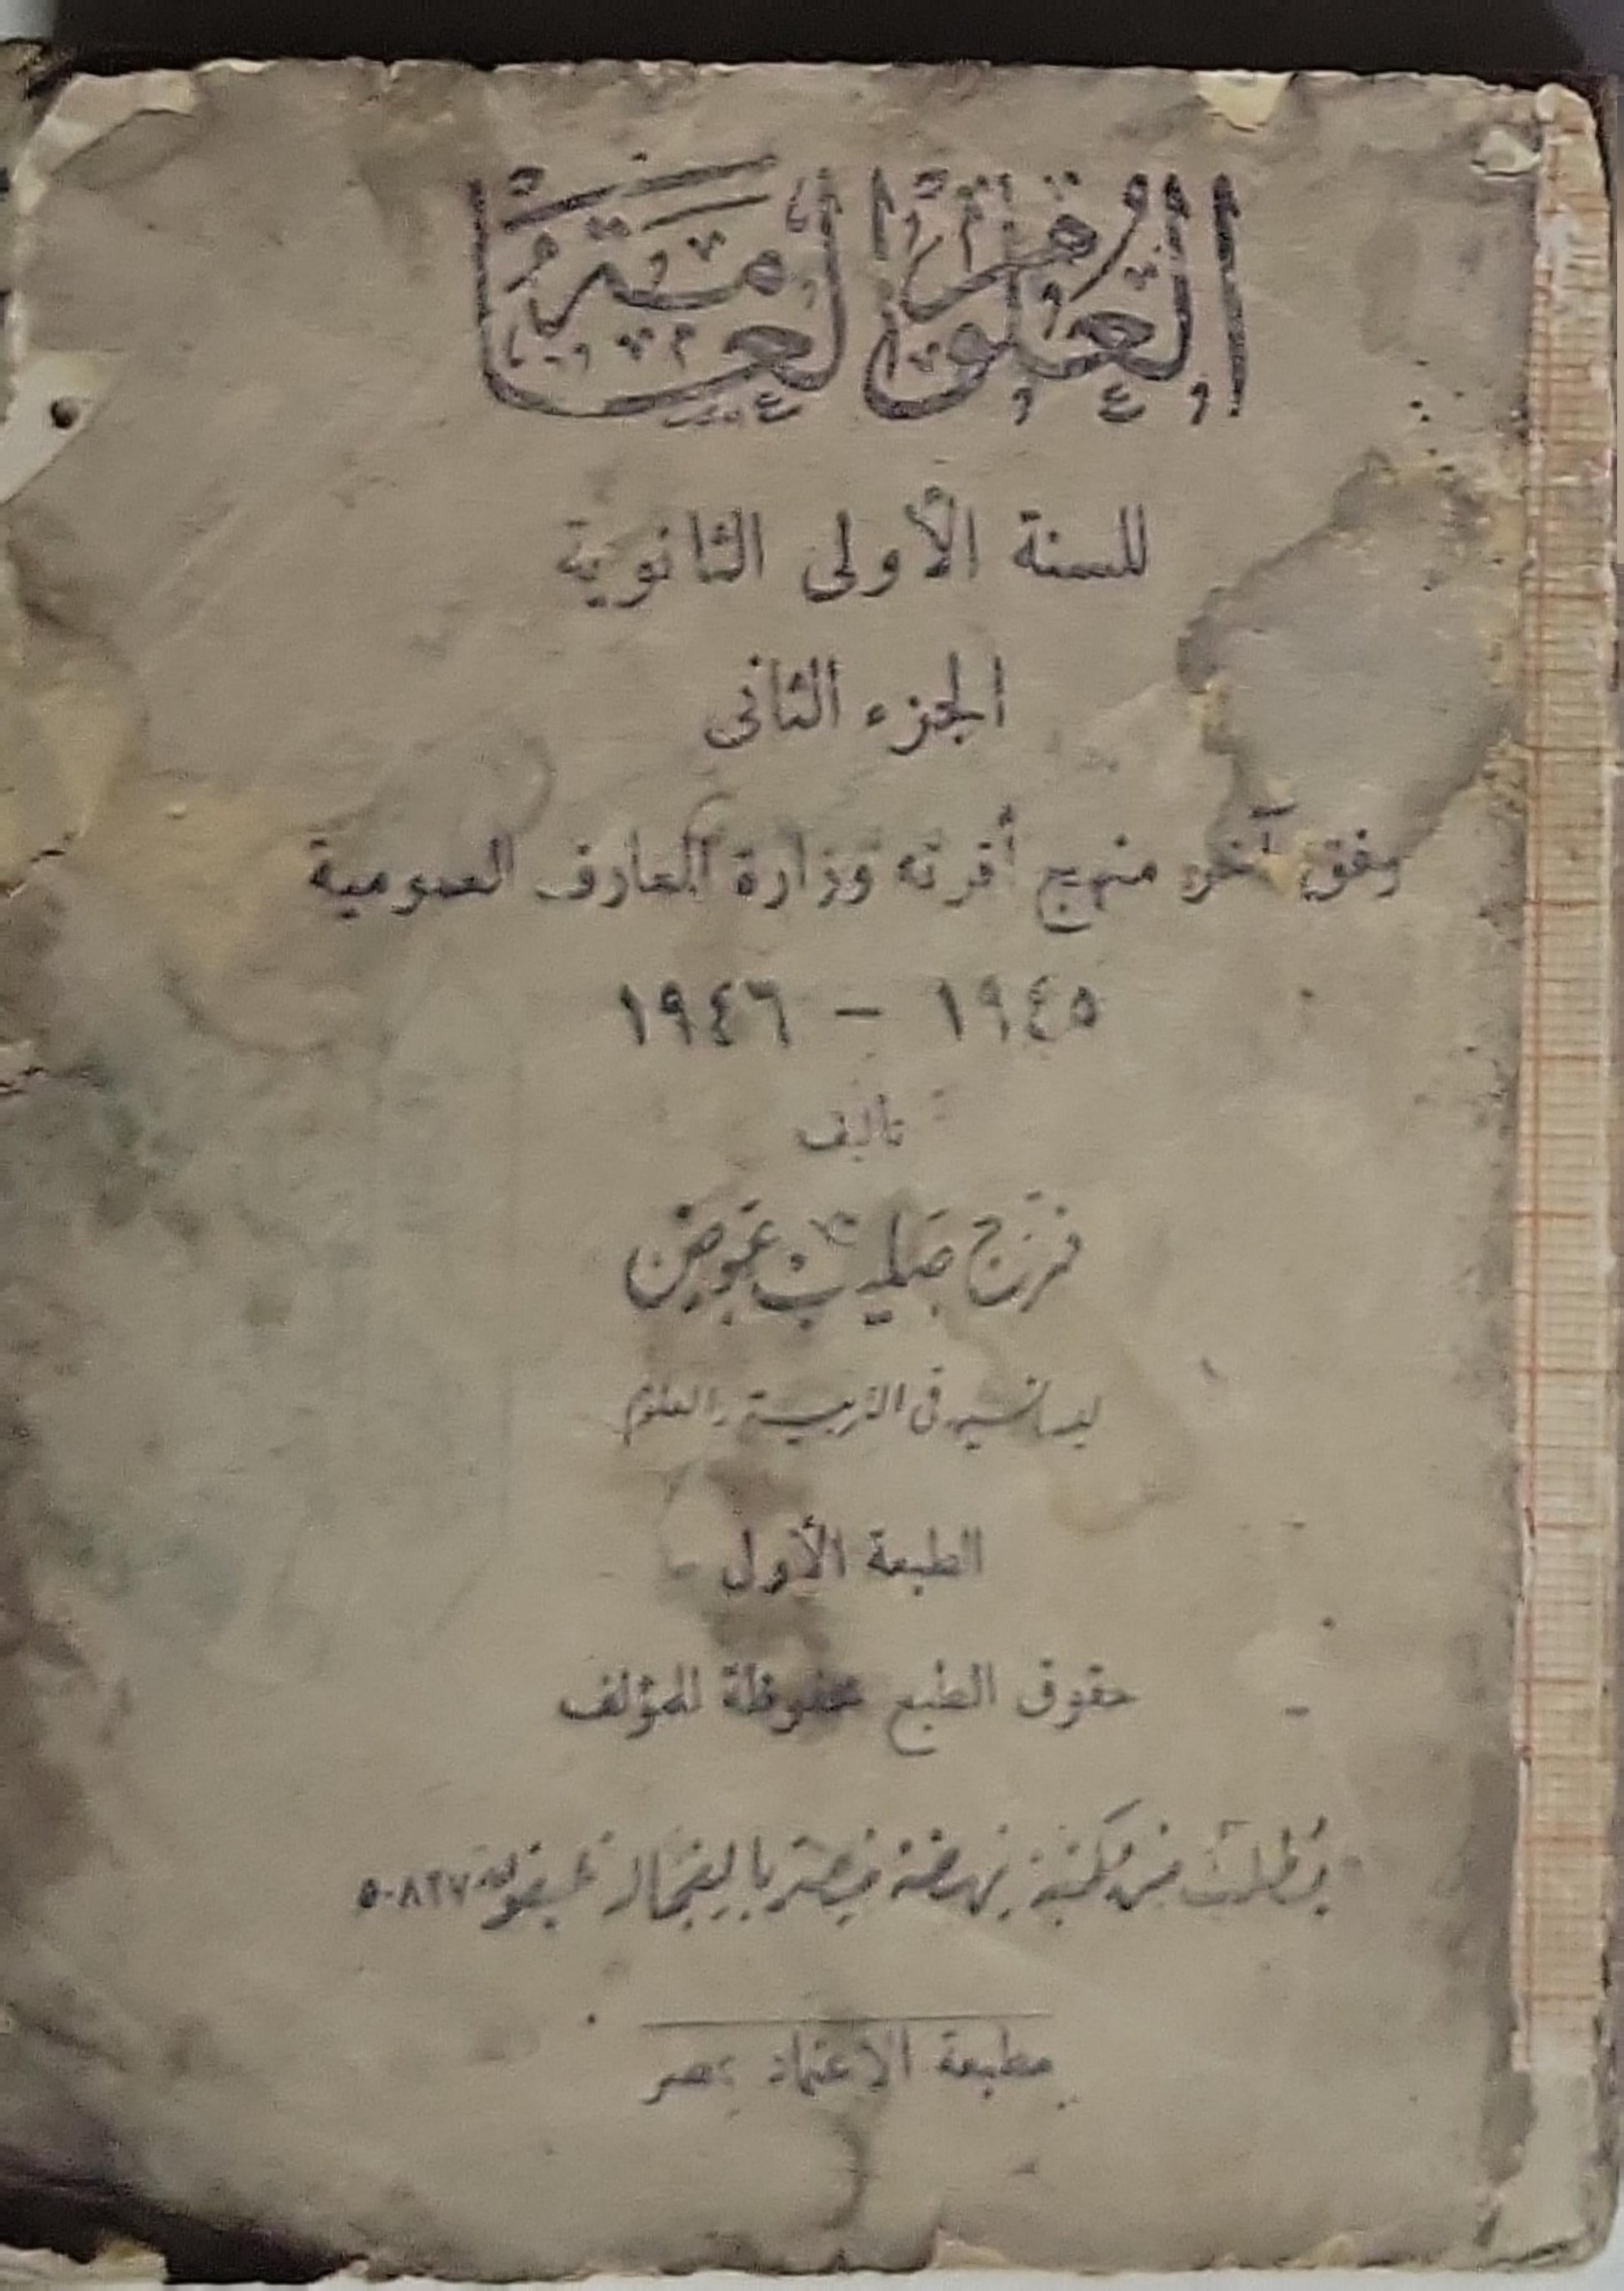 العلوم العامة
للسنة الأولى الثانوية
الجزء الثانى
وفق آخر منهج أقرته وزارة المعارف العمومية
١٩٤٥ – ١٩٤٦
تأليف
فرج صليب عوض
ليسانسيه فى التربية والعلوم
الطبعة الأولى
حقوق الطبع محفوظة للمؤلف
يطلب من مكتبة نهضة مصر بالفجالة تليفون ٥٠٨٢٧
مطبعة الاعتماد بمصر